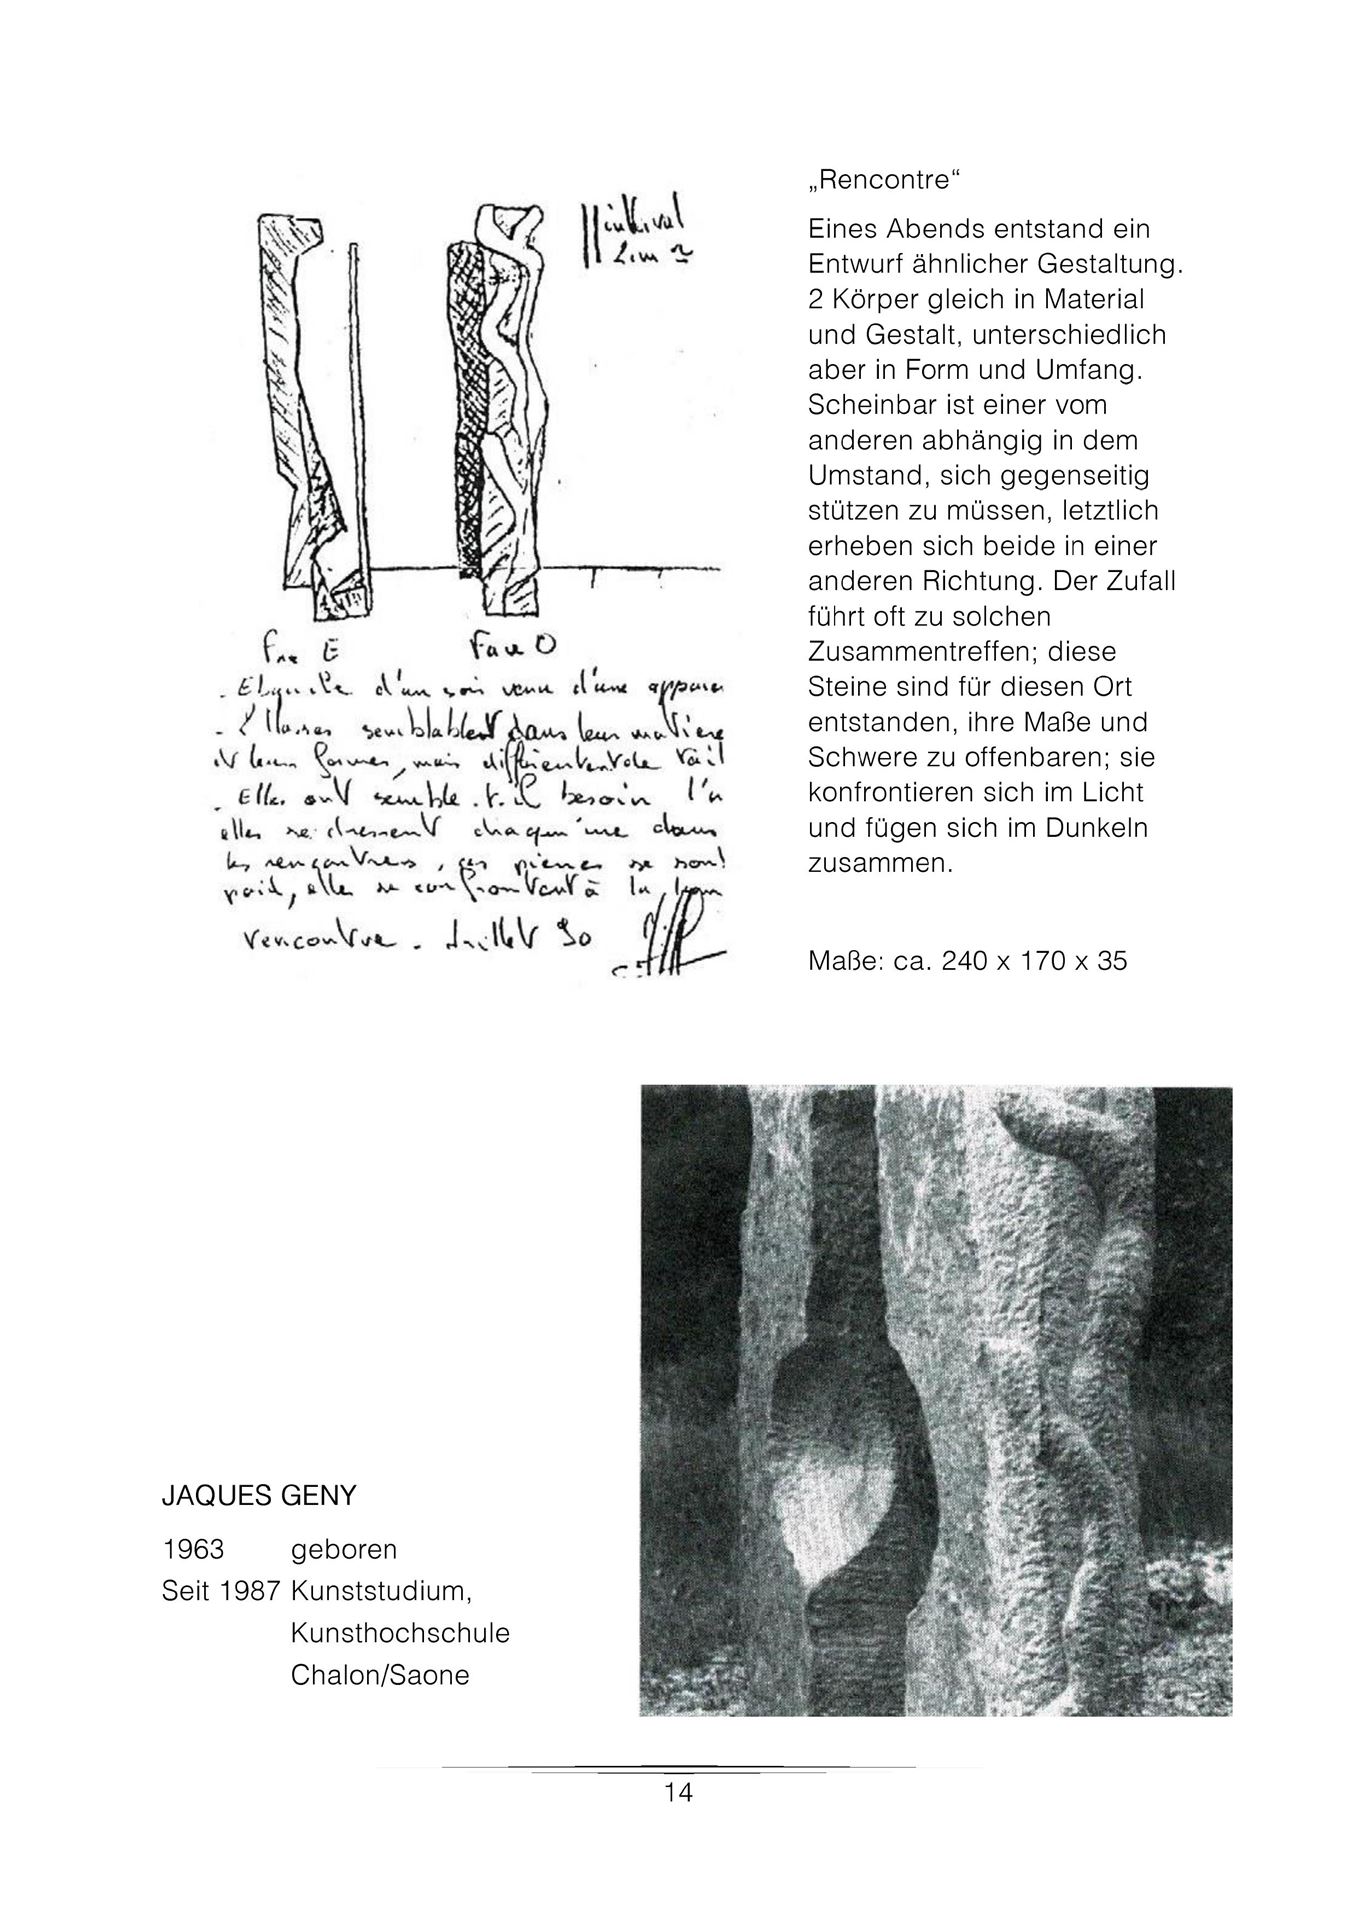 „Rencontre“
Eines Abends entstand ein
Entwurf ähnlicher Gestaltung.
2 Körper gleich in Material
und Gestalt, unterschiedlich
aber in Form und Umfang.
Scheinbar ist einer vom
anderen abhängig in dem
Umstand, sich gegenseitig
stützen zu müssen, letztlich
erheben sich beide in einer
anderen Richtung. Der Zufall
führt oft zu solchen
Zusammentreffen; diese
Steine sind für diesen Ort
entstanden, ihre Maße und
Schwere zu offenbaren; sie
konfrontieren sich im Licht
und fügen sich im Dunkeln
zusammen.
Maße: ca. 240 x 170 x 35
Face E
Face O
d'un soir venu d'une
semblables dans leur matière
leurs formes, mais
Elles ont semble.t.il besoin
elles se dressent dans
les rencontres, ces pierres se
elles se confrontent à la
rencontre. Juillet 90
JAQUES GENY
1963 geboren
Seit 1987 Kunststudium,
Kunsthochschule
Chalon/Saone
14